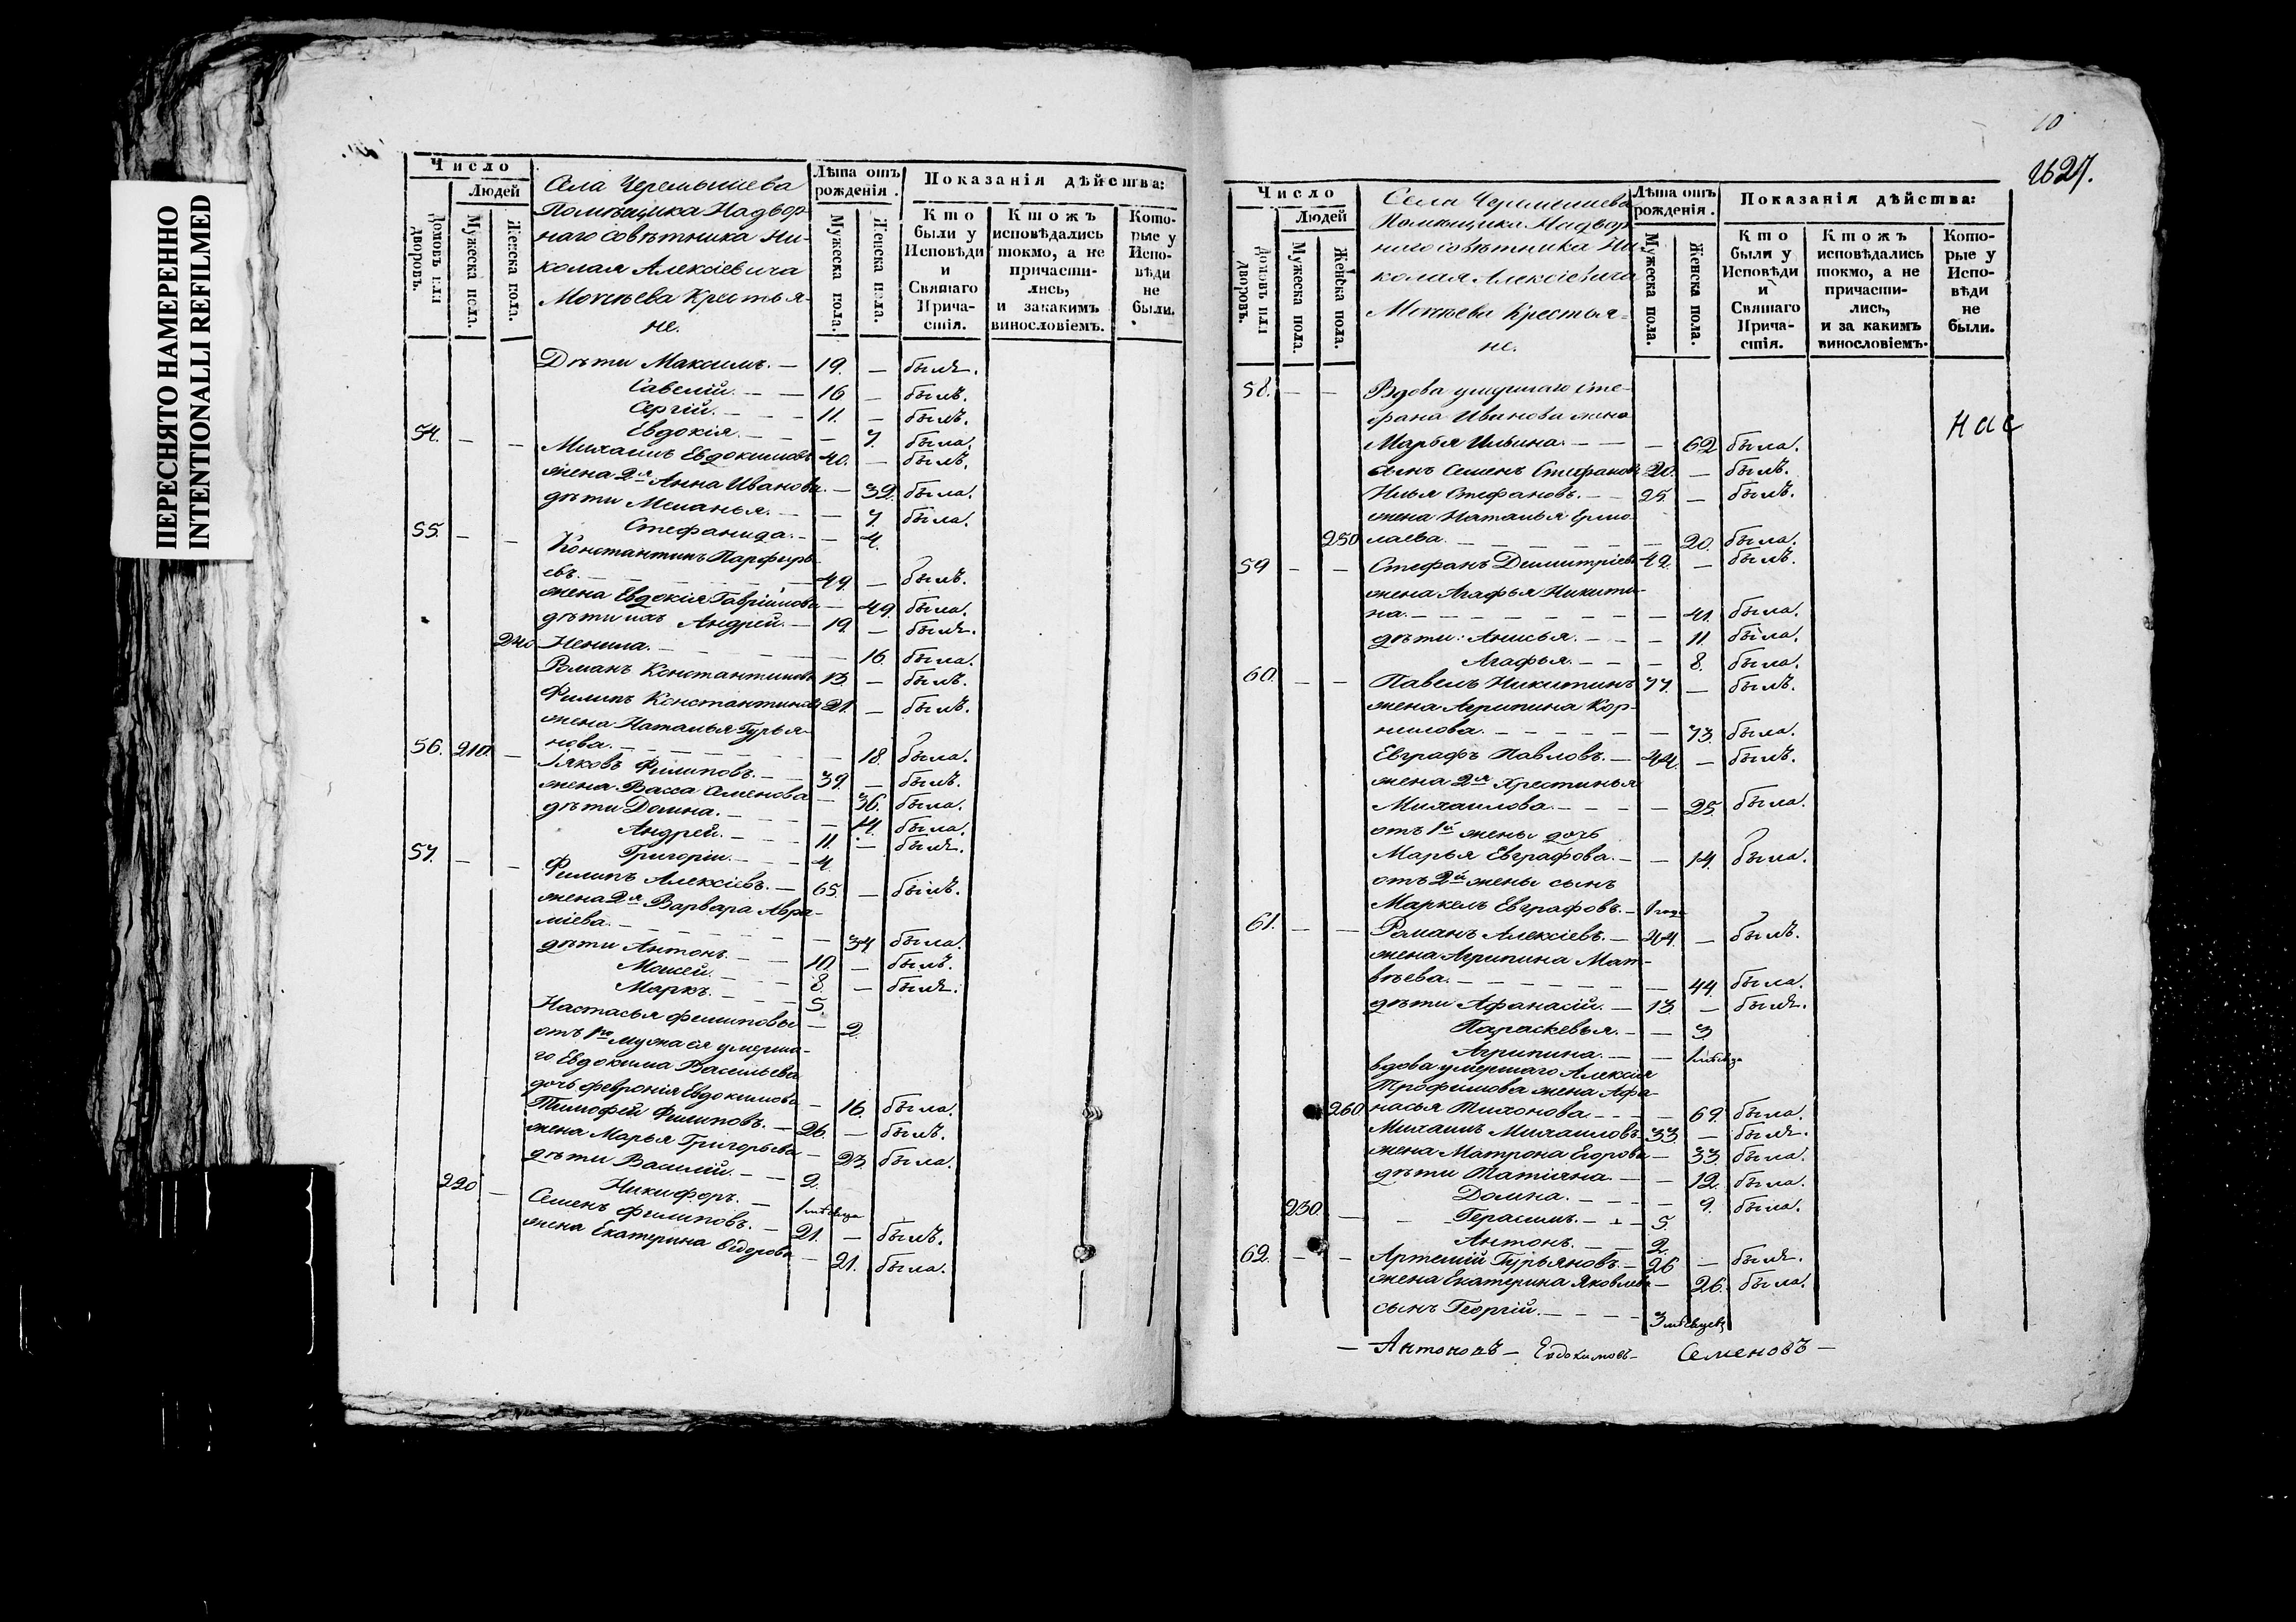 ПЕРЕСНЯТО НАМЕРЕННО
INTENTIONALLI REFILMED
Число
Людей
Домовъ или дворовъ.
Мужеска пола.
Женска пола.
Села Черемышева
Помѣщика Надвор-
наго совѣтника Ни-
колая Алексіевича
Крестья-
не.
Лѣта отъ рожденія.
Мужеска пола.
Женска пола.
Показанія дѣйства:
Кто были у Исповѣди и Святаго Причастія.
Ктожъ исповѣдались токмо, а не причастились, и закакимъ винословіемъ.
Которые у Исповѣди не были.
Дѣти Максимъ. — 19. — былъ.
Савелій. — — 16 — былъ.
Сергій. — — — 11. — былъ.
Евдокія. — — — 7. была.
54. — — Михаилъ Евдокимовъ 40. — былъ.
жена 2я Анна Иванова. — 39. была.
дѣти Меланья. — — 7. была.
Стефанида. — — 4.
55. — — Константинъ Парфирь-
евъ. — 49. — былъ.
жена Евдокія Гавріилова — 49. была.
дѣти ихъ Андрей. — 19. — былъ.
240 Ненила. — — 16. была.
Романъ Константиновъ 13. — былъ.
Филипъ Константиновъ 21. — былъ.
жена Наталья Гурья-
нова. — — 18. была.
56. 210. — Іяковъ Филиповъ. — 39. — былъ.
жена Васса Семенова — 36. была.
дѣти Домна. — — 14. была.
Андрей. — 11. — былъ.
Григорій. — — 4.
57. — — Филипъ Алексіевъ. — 65. — былъ.
жена 2я Варвара Авра-
міева. — — 34. была.
дѣти Антонъ. — — 10. — былъ.
Моисей. — 8. — былъ.
Маркъ. — — 5.
Настасья Филипова — 2.
отъ 1го мужа ея умерша-
го Евдокима Васильева
дочь Февронія Евдокимова — 16. была.
Тимофей Филиповъ. — 26. — былъ.
жена Марья Григорьева — 23. была.
дѣти Василій. — — 2.
220 — Никифоръ. — 1 мѣсяца
Семенъ Филиповъ. — 21. — былъ.
жена Екатерина Ѳедорова — 21. была.
10
2627.
Число
Людей
Домовъ или дворовъ.
Мужеска пола.
Женска пола.
Села Черемышева
Помѣщика Надвор-
наго совѣтника Ни-
колая Алексіевича
Крестья-
не.
Лѣта отъ рожденія.
Мужеска пола.
Женска пола.
Показанія дѣйства:
Кто были у Исповѣди и Святаго Причастія.
Ктожъ исповѣдались токмо, а не причастились, и за какимъ винословіемъ.
Которые у Исповѣди не были.
58. — — Вдова умершаго Сте-
фана Иванова жена
Марья Ильина. — — — 62 была.
сынъ Семенъ Стефановъ 20. — былъ.
Илья Стефановъ. — — 25. — былъ.
жена Наталья Ермо-
250 лаева. — — 20. была.
59 — — Стефанъ Димитріевъ 42. — былъ.
жена Агафья Никити-
на. — — 41. была.
дѣти: Анисья. — — — 11. была.
Агафья. — — — 8. была.
60. — — Павелъ Никитинъ 77. — былъ.
жена Агрипина Кор-
нилова. — — 73. была.
Евграфъ Павловъ. — 44. — былъ.
жена 2я Христинья
Михаилова. — — 25. была.
отъ 1й жены дочь
Марья Евграфова. — — 14. была.
отъ 2й жены сынъ
Маркелъ Евграфовъ. — 1 года
61. — — Романъ Алексіевъ. — 44. — былъ.
жена Агрипина Мат-
вѣева. — — 44. была.
дѣти Афанасій. — 13. — былъ.
Параскевья. — — 3
Агрипина. — — 1 мѣсяца
вдова умершаго Алексія
Трофимова жена Афа-
260 насья Тихонова — — 69. была.
Михаилъ Михаиловъ. 33 — былъ.
жена Матрона Егорова — 33. была.
дѣти Татіяна. — — 12. была.
Домна. — — — 9. была.
230. — Герасимъ. — — 5.
Антонъ. — — 2.
62. — — Артемій Гурьяновъ. — 26 — былъ.
жена Екатерина Яковлева — 26. была.
сынъ Георгій. — — 3 мѣсяцевъ
нас
— Антоновъ — Евдокимовъ — Семеновъ —